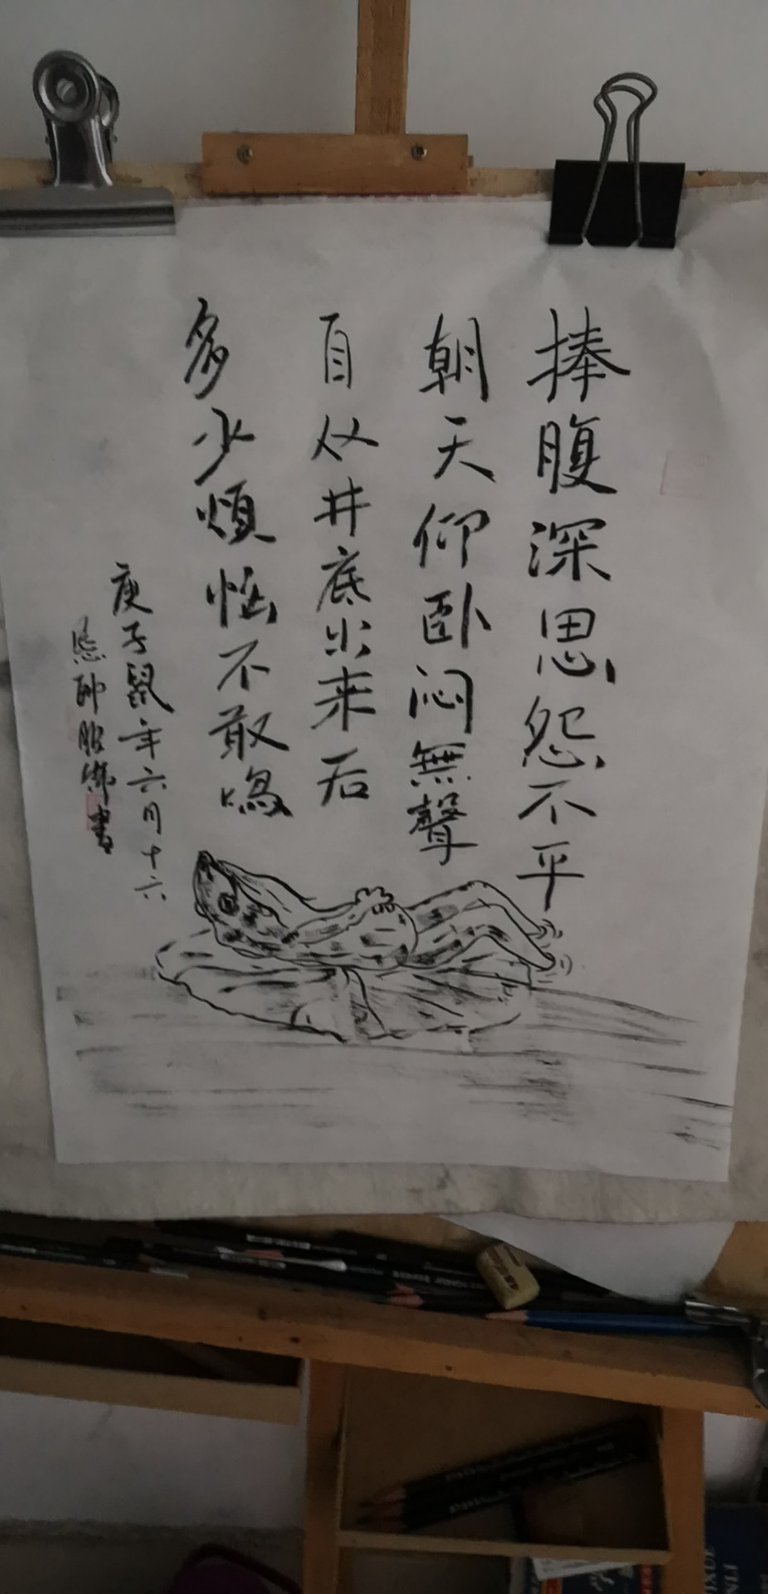 捧腹深思怨不平
朝天仰卧闷無聲
自从井底出来后
多少煩恼不敢鳴
庚子鼠年六月十六
恩師
書